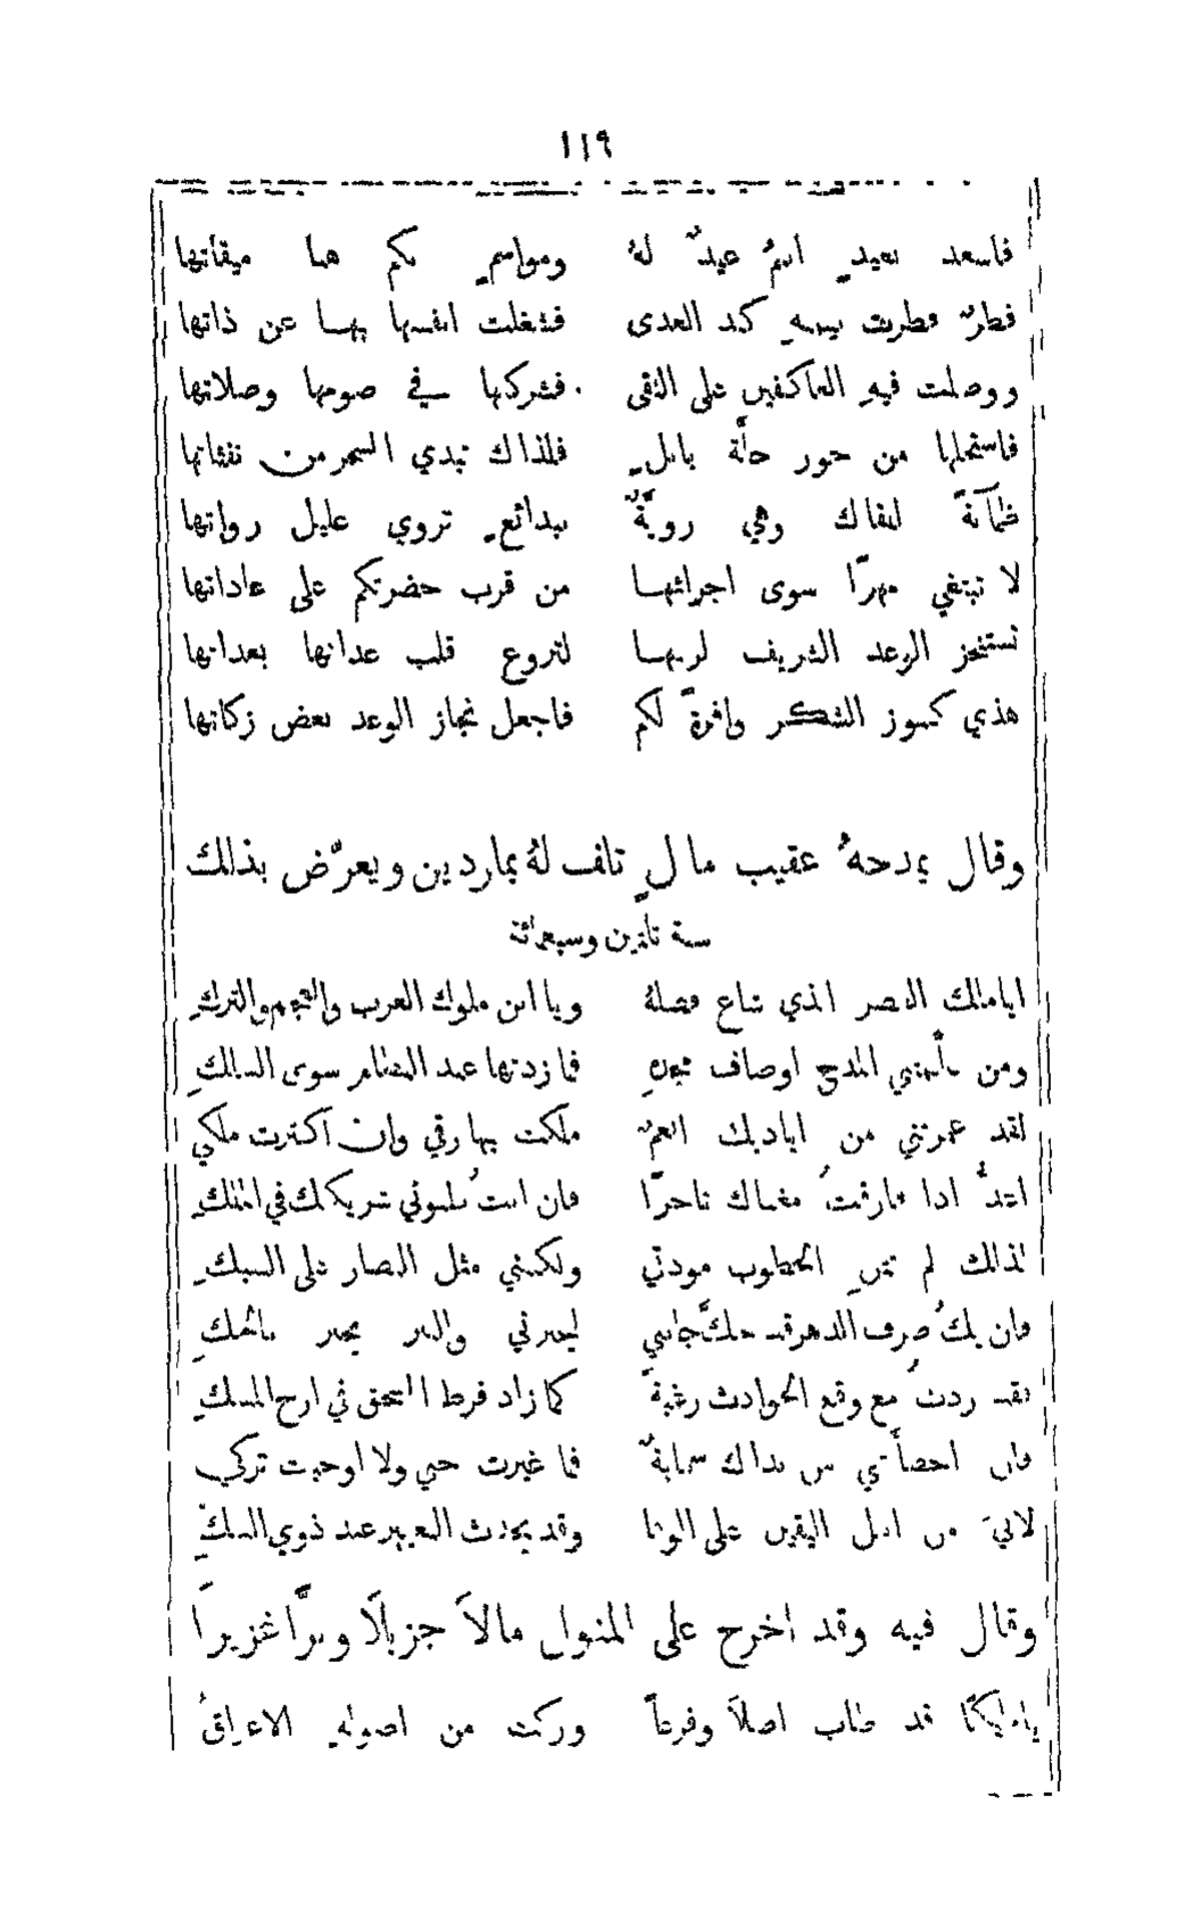 ١١٩
فاسعد بعيدٍ انتمُ عيدٌ لهُ ومواسمٍ بكم هما ميقاتها
فطرٌ فطرت بيسهِ كبد العدى فشغلت انفسها بها عن ذاتها
ووصلت فيهِ العاكفين على التقى فشركتها في صومها وصلاتها
فاستجلها من حور حلَّة بابلٍ فلذاك تبدي السحر من نفثاتها
ظمآنةً للقاك وهي رويَّةٌ ببدائعٍ تروي غليل رواتها
لا تبتغي مهرًا سوى اجرائها من قرب حضرتكم على عاداتها
تستنجز الوعد الشريف لربها لتروع قلب عداتها بعداتها
هذي كنوز الشكر وافرةً لكم فاجعل نجاز الوعد بعض زكاتها
وقال يمدحهُ عقيب مالٍ تلف لهُ بماردين ويعرّض بذلك
سنة ثلثين وسبعمائة
ايا ملك العصر الذي شاع فضلهُ ويا ابن ملوك العرب والعجم والتركِ
ومن سألهمتني المدح اوصاف مجدهِ فما زدتها عند النظام سوى السلكِ
لقد غمرتني من اياديك انعمٌ ملكت بها رقي وان اكثرت ملكي
اتتدُّ اذا فارقت مغناك تاجرًا فان ابتُ شريكك في الملكِ
لذلك لم تثنِ الخطوب مودتي ولكنني مثل النضار على السبكِ
فان يكُ صرف الدهر قد حكَّ جانبي ليخبرني والتبر يخبر بالحكِ
لقد زدتُ مع وقع الحوادث رغبةً كما زاد فرط السحق في ارج المسكِ
فان احصأتني من نداك سحابةٌ فما غيرت حبي ولا اوجبت تركي
لاني من اهل اليقين على الوفا وقد يحدث التغيير عند ذوي الشكِّ
وقال فيه وقد اخرج على المغول مالاً جزيلاً وبرًّا غزيرًا
يا مليكًا قد طاب اصلاً وفرعاً وزكت من اصولهِ الاعراقُ